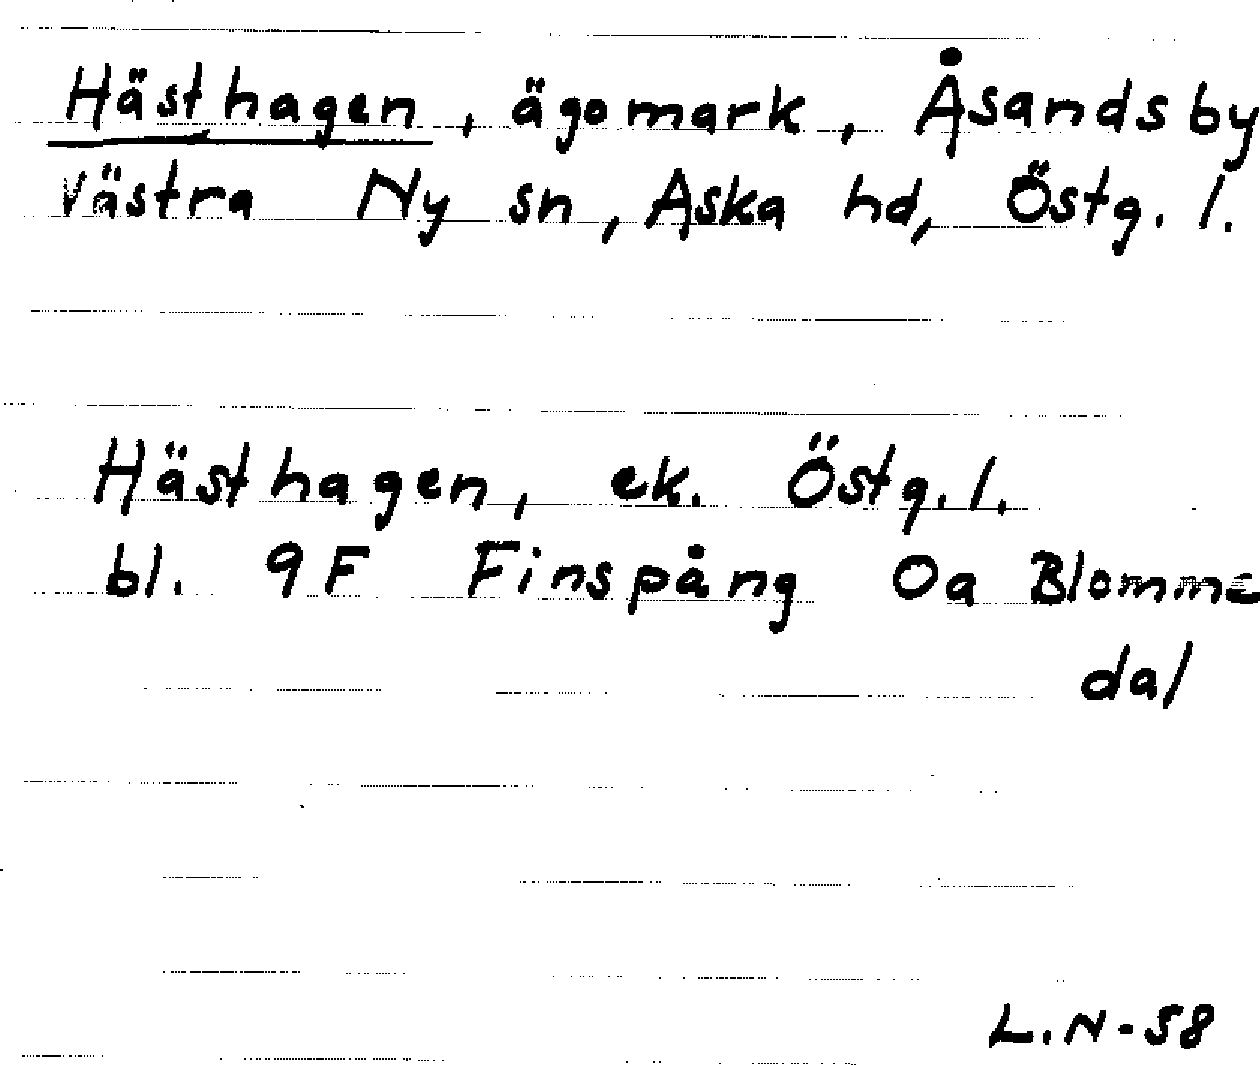 Hästhagen, ägomark, Åsandsby
Västra Ny sn, Aska hd, Östg. l.
Hästhagen, ek. Östg. l.
bl. 9F Finspång 0a Blomme
dal
L.N-58